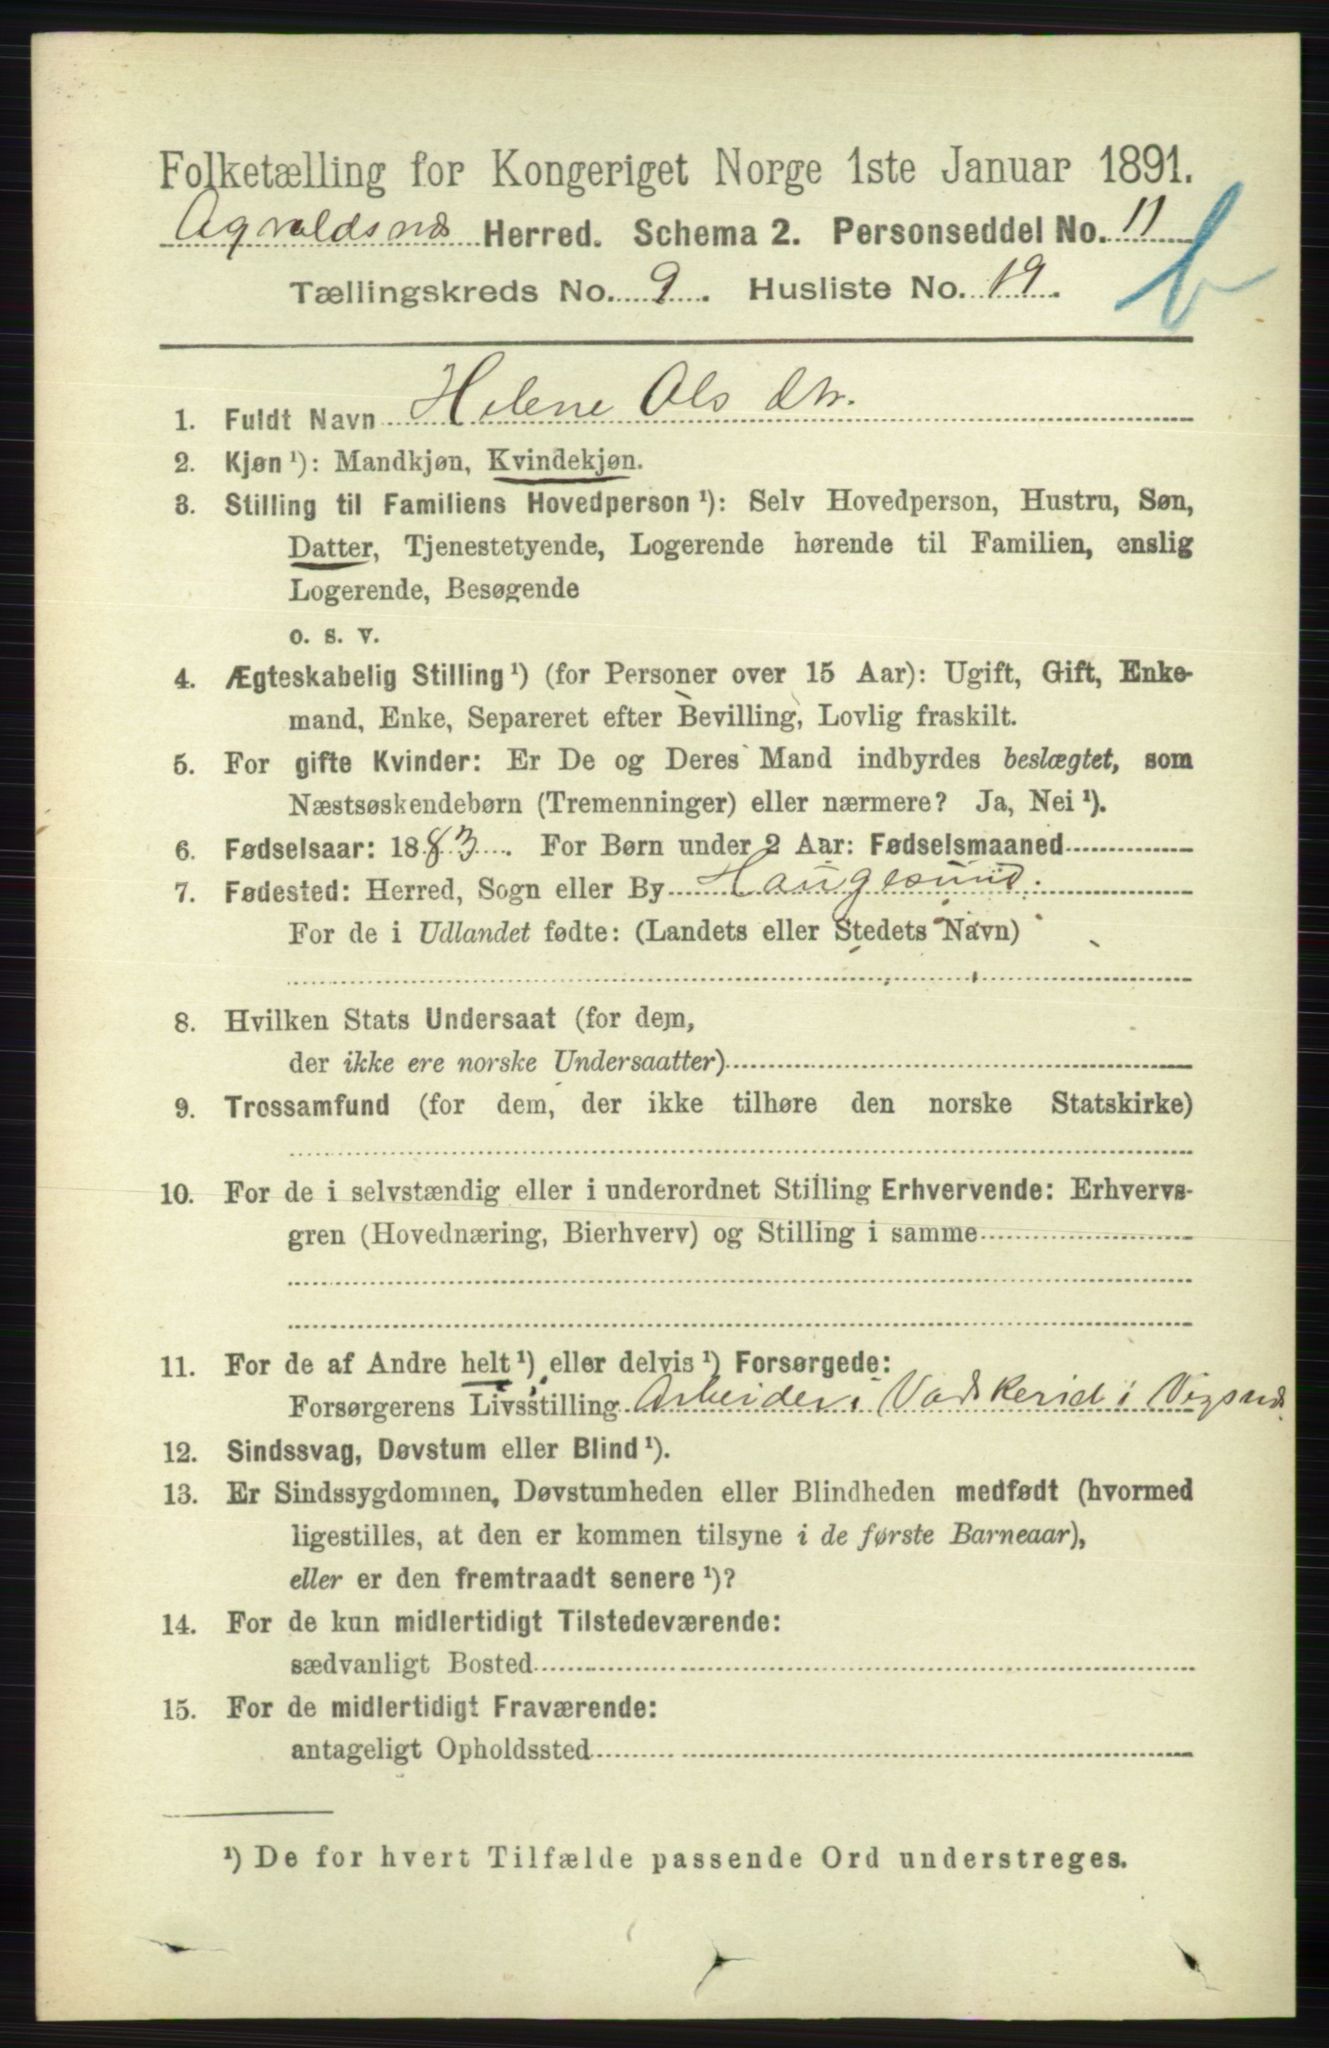 Folketælling for Kongeriget Norge 1ste Januar 1891.
Agvaldsnæs Herred. Schema 2. Personseddel No. 11
b
Tællingskreds No. 9. Husliste No. 19.
1. Fuldt Navn Helene Olsdtr.
2. Kjøn ¹): Mandkjøn, Kvindekjøn.
3. Stilling til Familiens Hovedperson ¹): Selv Hovedperson, Hustru, Søn,
Datter, Tjenestetyende, Logerende hørende til Familien, enslig
Logerende, Besøgende
o. s. v.
4. Ægteskabelig Stilling ¹) (for Personer over 15 Aar): Ugift, Gift, Enke-
mand, Enke, Separeret efter Bevilling, Lovlig fraskilt.
5. For gifte Kvinder: Er De og Deres Mand indbyrdes beslægtet, som
Næstsøskendebørn (Tremenninger) eller nærmere? Ja, Nei ¹).
6. Fødselsaar: 1883. For Børn under 2 Aar: Fødselsmaaned
7. Fødested: Herred, Sogn eller By Haugesund.
For de i Udlandet fødte: (Landets eller Stedets Navn)
8. Hvilken Stats Undersaat (for dem,
der ikke ere norske Undersaatter)
9. Trossamfund (for dem, der ikke tilhøre den norske Statskirke)
10. For de i selvstændig eller i underordnet Stilling Erhvervende: Erhvervs-
gren (Hovednæring, Bierhverv) og Stilling i samme
11. For de af Andre helt ¹) eller delvis ¹) Forsørgede:
Forsørgerens Livsstilling Arbeider i i Vigsnæs
12. Sindssvag, Døvstum eller Blind ¹).
13. Er Sindssygdommen, Døvstumheden eller Blindheden medfødt (hvormed
ligestilles, at den er kommen tilsyne i de første Barneaar),
eller er den fremtraadt senere ¹)?
14. For de kun midlertidigt Tilstedeværende:
sædvanligt Bosted
15. For de midlertidigt Fraværende:
antageligt Opholdssted
¹) De for hvert Tilfælde passende Ord understreges.